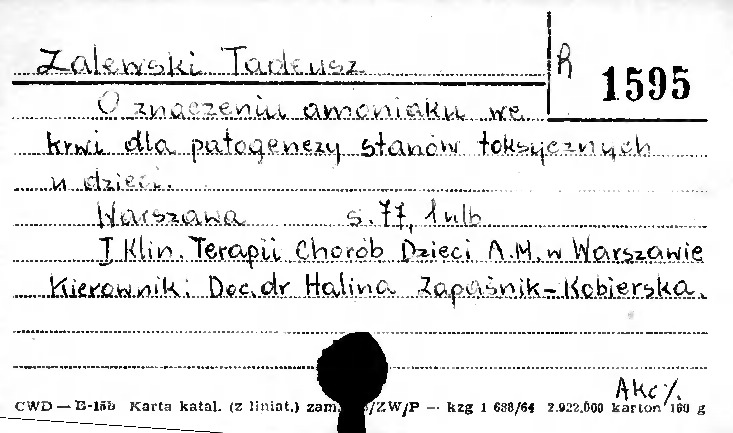 Zalewski Tadeusz
R 1595
O znaczeniu amoniaku we
krwi dla patogenezy stanów toksycznych
u dzieci.
Warszawa s. 77, 1 ulb
I Klin. Terapii Chorób Dzieci A.M. w Warszawie
Kierownik: Doc. dr Halina Zapaśnik-Kobierska.
Akc/.
CWD — B-15b Karta katal. (z liniat.) zam. /ZW/P — kzg 1 688/64 2.922.000 karton 160 g